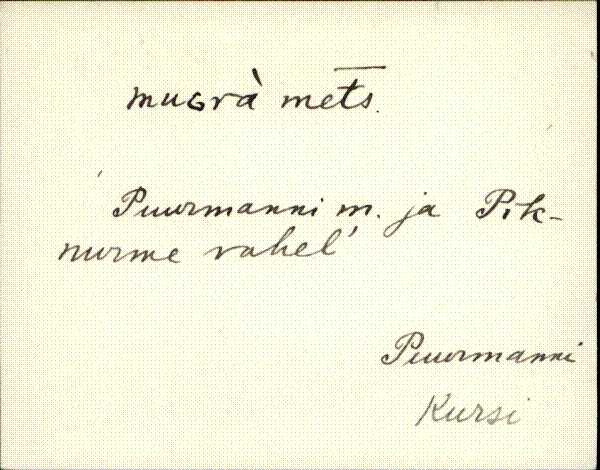 muGrà mets.
Puurmanni m. ja Pik-
nurme vahel'
Puurmanni
Kursi